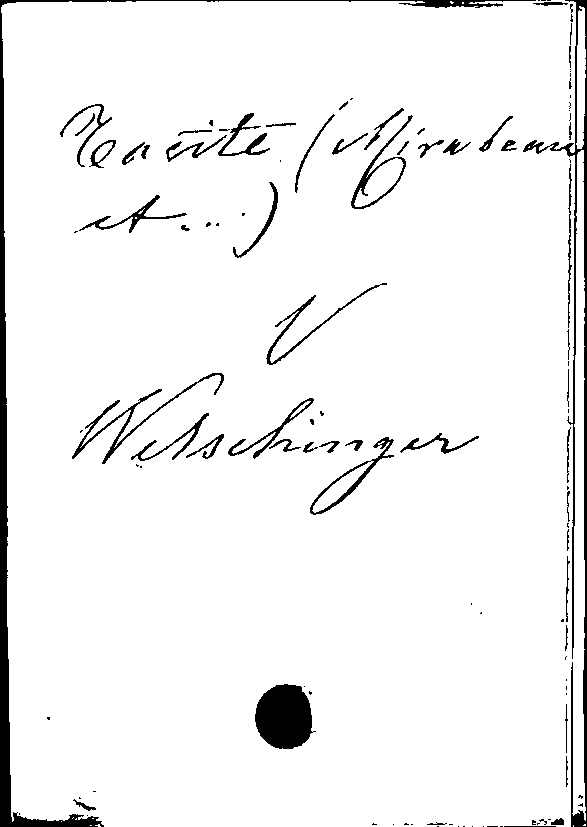 Tacite (Mirabeau
et...)
V
Welschinger